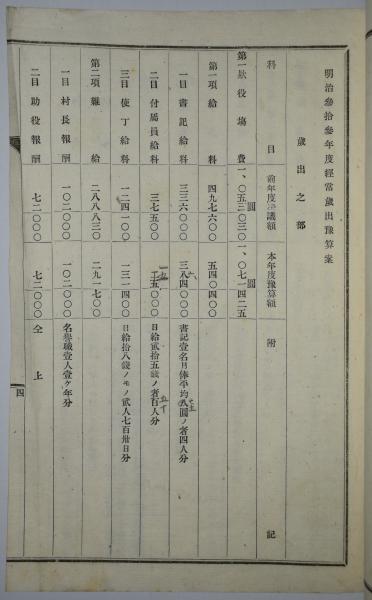 明治參拾參年度經常歲出豫算案
歲出之部
科目 前年度決議額 本年度豫算額 附記
第一款役塲費 一、〇五三〇三〇 一、〇七一四二五
圓 圓
第一項給料 四九七六〇〇 五四〇四〇〇
一目書記給料 三三六〇〇〇 三八四〇〇〇 書記壹名月俸平均八圓ノ者四人分
二目付屬員給料 三七五〇〇 二五〇〇〇 日給貳拾五錢ノ者百人分
三目使丁給料 一二四一〇〇 一三一四〇〇 日給拾八錢ノモノ貳人七百卅日分
第二項雜給 二八八八三〇 二九一七〇〇
一目村長報酬 一〇二〇〇〇 一〇二〇〇〇 名譽職壹人壹ケ年分
二目助役報酬 七二〇〇〇 七二〇〇〇 仝上
四